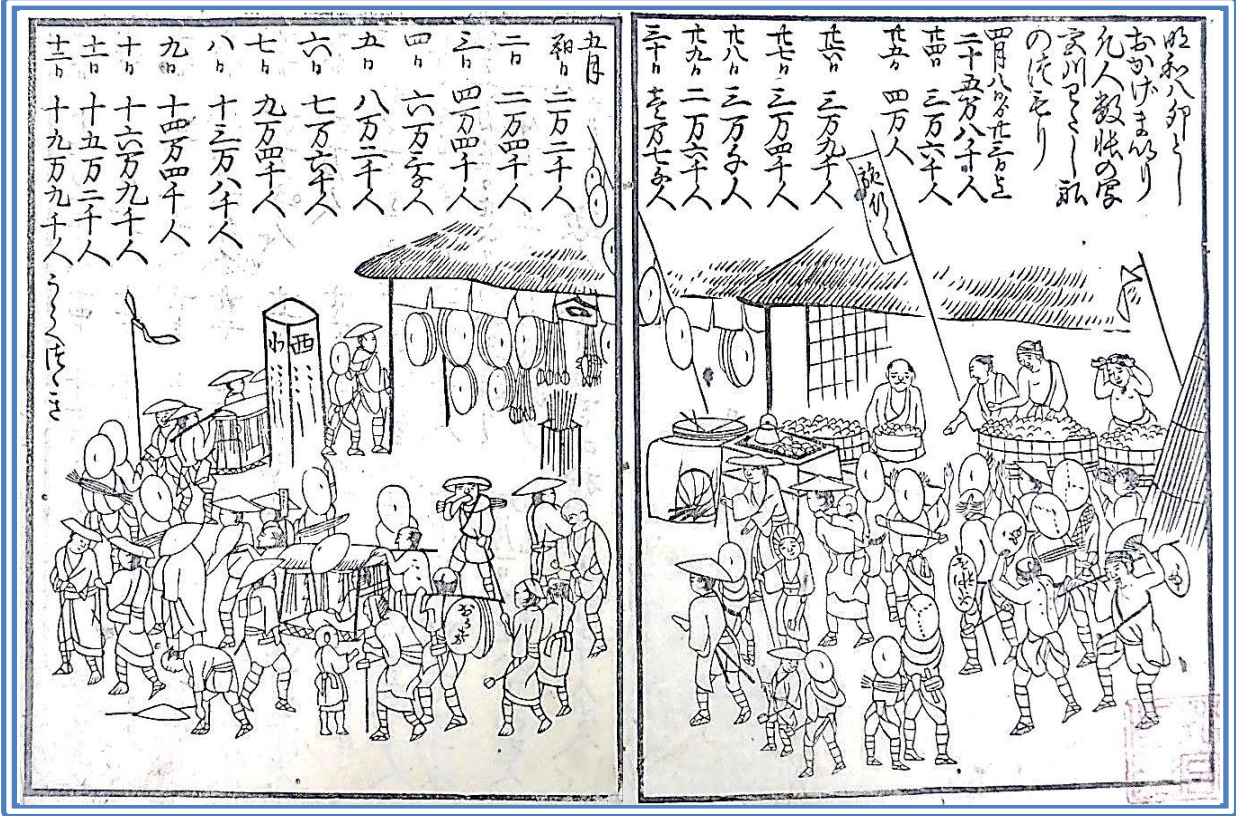 明和八卯とし
おかげまいり
凡人数帳の写
宮川わたし船
のつもり
四月八日ゟ廿三日迄
二十五万八千人
廿四日 三万六千人
廿五日 四万人
廿六日 三万九千人
廿七日 三万四千人
廿八日 三万 人
廿九日 二万六千人
三十日 壱万七千人
施行
五月
朔日 二万二千人
二日 二万四千人
三日 四万四千人
四日 六万 人
五日 八万二千人
六日 七万六千人
七日 九万四千人
八日 十三万八千人
九日 十四万四千人
十日 十六万九千人
十一日 十五万二千人
十二日 十九万九千人
うらへつゞき
西
おかげ